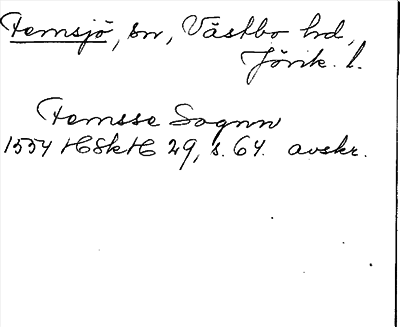 Femsjö, sn, Västbo hd,
Jönk. l.
Femsse Sognn
1554 HSkH 29, s. 64. avskr.